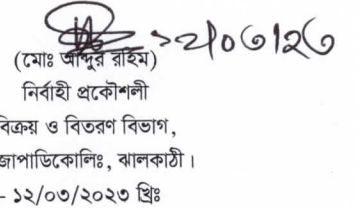 ১২/০৩/২৩
(মোঃ আব্দুর রহিম)
নির্বাহী প্রকৌশলী
বিক্রয় ও বিতরণ বিভাগ,
জাপাডিকোলিঃ, ঝালকাঠী।
- ১২/০৩/২০২৩ খ্রিঃ